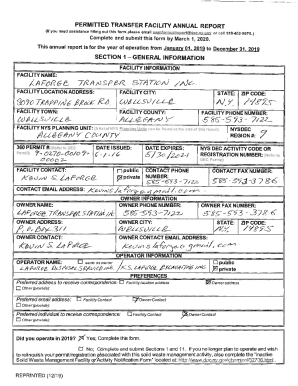 PERMITTED TRANSFER FACILITY ANNUAL REPORT
Complete and submit this form by March 1, 2020.
This annual report is for the year of operation from January 01, 2019 to December 31, 2019
SECTION 1 – GENERAL INFORMATION
FACILITY INFORMATION
FACILITY NAME:
LAFORGE TRANSFER STATION INC.
FACILITY LOCATION ADDRESS: FACILITY CITY: STATE: ZIP CODE:
WELLSVILLE N.Y. 14895
FACILITY TOWN: FACILITY COUNTY: FACILITY PHONE NUMBER:
WELLSVILLE ALLEGANY 585-593-7122
FACILITY NYS PLANNING UNIT: NYSDEC
ALLEGANY COUNTY REGION #: 9
360 PERMIT # DATE ISSUED: DATE EXPIRES: NYS DEC ACTIVITY CODE OR
REGISTRATION NUMBER:
00002 6-1-16 5/30/2021
FACILITY CONTACT: public CONTACT PHONE CONTACT FAX NUMBER:
KEVIN S. LAFORGE private NUMBER:
585-593-7122 585-593-3786
CONTACT EMAIL ADDRESS:
OWNER INFORMATION
OWNER NAME: OWNER PHONE NUMBER: OWNER FAX NUMBER:
LAFORGE TRANSFER STATION IN 585-593-7122 585-593-3786
OWNER ADDRESS: OWNER CITY: STATE: ZIP CODE:
P.O. BOX 311 WELLSVILLE N.Y. 14895
OWNER CONTACT: OWNER CONTACT EMAIL ADDRESS:
KEVIN S. LAFORGE
OPERATOR INFORMATION
OPERATOR NAME: same as owner public
private
PREFERENCES
Preferred address to receive correspondence: Facility location address Owner address
Other (provide):
Preferred email address: Facility Contact Owner Contact
Other (provide):
Preferred individual to receive correspondence: Facility Contact Owner Contact
Other (provide):
Did you operate in 2019? Yes; Complete this form.
No; Complete and submit Sections 1 and 11. If you no longer plan to operate and wish
to relinquish your permit/registration associated with this solid waste management activity, also complete the "Inactive
Solid Waste Management Facility or Activity Notification Form" located at:
REPRINTED (12/19)